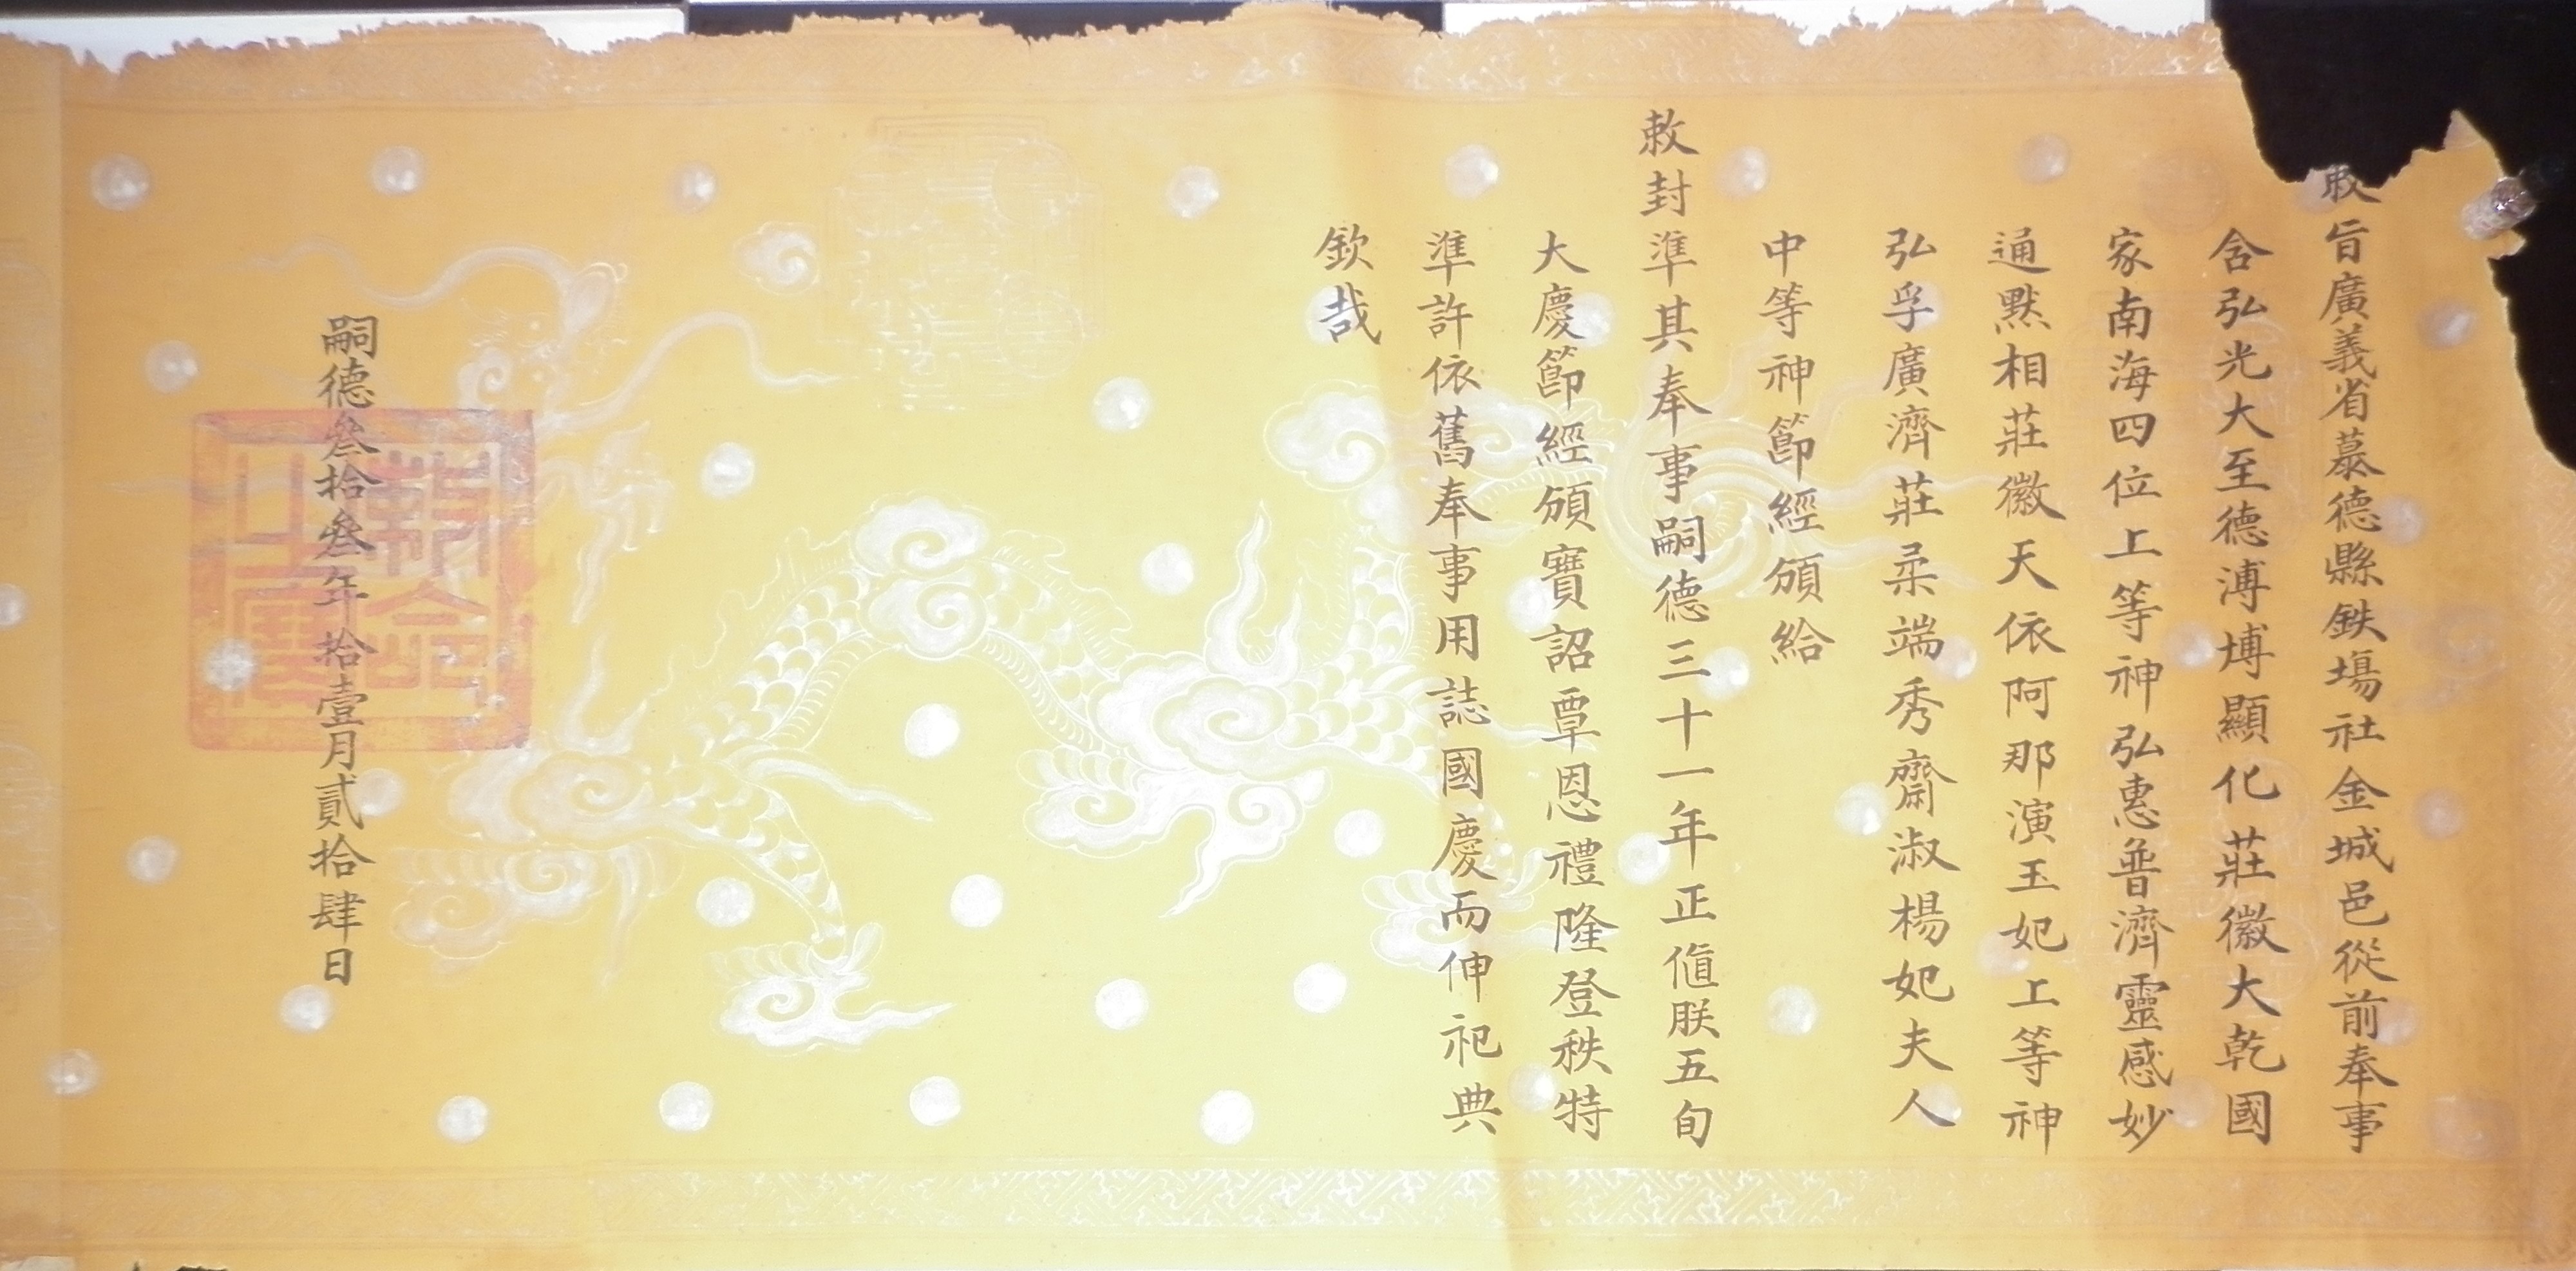 敕旨廣義省慕德縣鉄塲社金城邑從前奉事
含弘光大至德溥博顯化莊徽大乾國
家南海四位上等神弘惠普濟靈感妙
通黙相莊徽天依阿那演玉妃上等神
弘孚廣濟莊柔端秀齋淑楊妃夫人
中等神節經頒給
敕封準其奉事嗣德三十一年正值朕五旬
大慶節經頒寶詔覃恩禮隆登秩特
準許依舊奉事用誌國慶而伸祀典
欽哉
嗣德叄拾叄年拾壹月貳拾肆日
敕命之寶